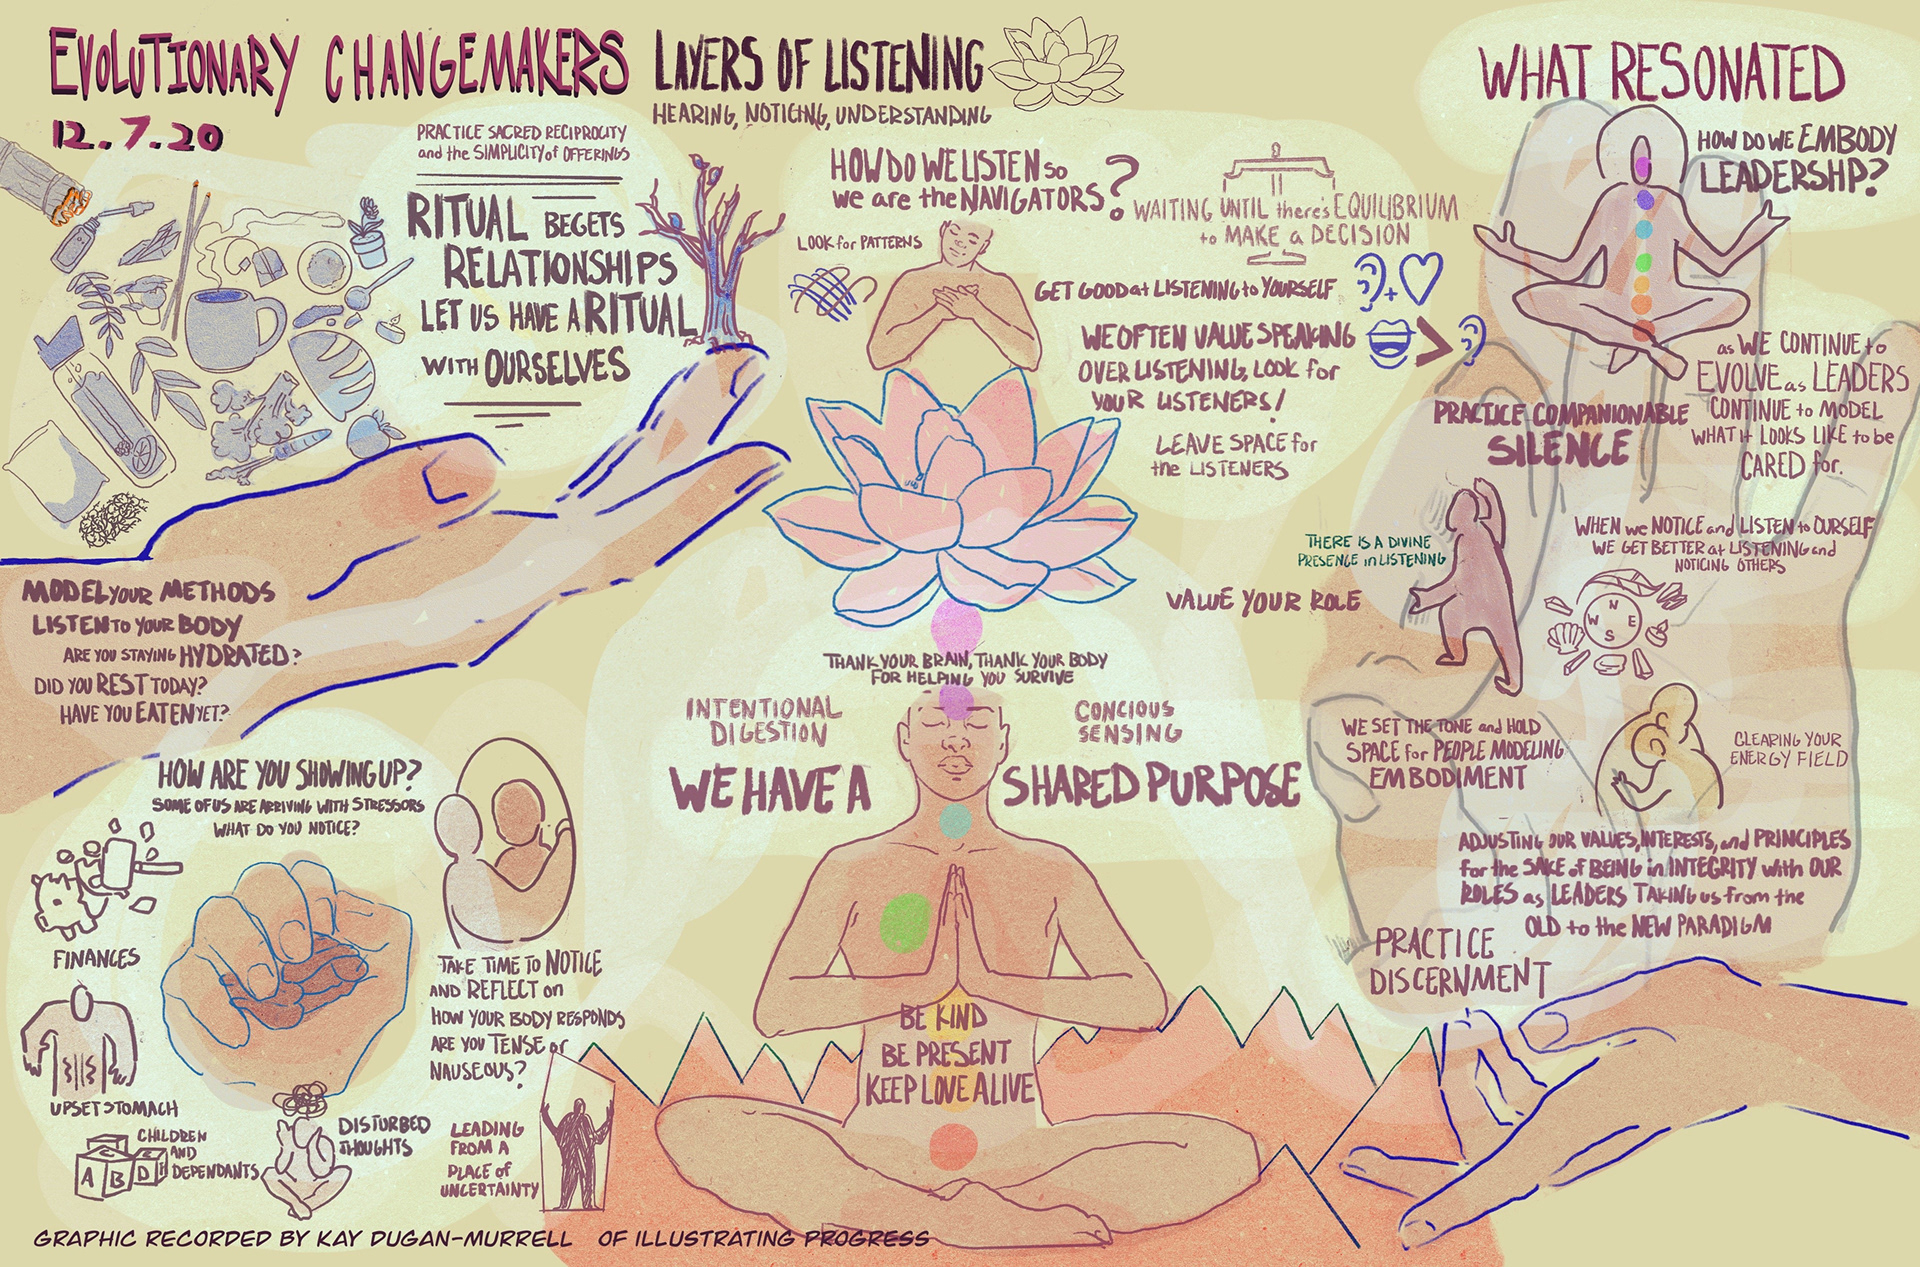 EVOLUTIONARY CHANGEMAKERS
12.7.20
LAYERS OF LISTENING
HEARING, NOTICING, UNDERSTANDING
PRACTICE SACRED RECIPROCITY
and the SIMPLICITY of OFFERINGS
RITUAL BEGETS
RELATIONSHIPS
LET US HAVE A RITUAL
WITH OURSELVES
MODEL YOUR METHODS
LISTEN TO YOUR BODY
ARE YOU STAYING HYDRATED?
DID YOU REST TODAY?
HAVE YOU EATEN YET?
HOW ARE YOU SHOWING UP?
SOME OF US ARE ARRIVING WITH STRESSORS
WHAT DO YOU NOTICE?
FINANCES
UPSET STOMACH
A B C D
CHILDREN
AND
DEPENDANTS
DISTURBED
THOUGHTS
TAKE TIME TO NOTICE
AND REFLECT on
HOW YOUR BODY RESPONDS
ARE YOU TENSE or
NAUSEOUS?
LEADING
FROM A
PLACE of
UNCERTAINTY
HOW DO WE LISTEN so
we are the NAVIGATORS?
LOOK for PATTERNS
WAITING UNTIL there's EQUILIBRIUM
to MAKE a DECISION
GET GOOD at LISTENING to YOURSELF
+
WE OFTEN VALUE SPEAKING
>
OVER LISTENING, LOOK for
YOUR LISTENERS!
LEAVE SPACE for
the LISTENERS
THANK YOUR BRAIN, THANK YOUR BODY
FOR HELPING YOU SURVIVE
INTENTIONAL
DIGESTION
CONCIOUS
SENSING
WE HAVE A SHARED PURPOSE
BE KIND
BE PRESENT
KEEP LOVE ALIVE
WHAT RESONATED
HOW DO WE EMBODY
LEADERSHP?
as WE CONTINUE to
EVOLVE as LEADERS
CONTINUE to MODEL
WHAT it LOOKS LIKE to be
CARED for.
PRACTICE COMPANIONABLE
SILENCE
THERE IS A DIVINE
PRESENCE in LISTENING
VALUE YOUR ROLE
WHEN we NOTICE and LISTEN to OURSELF
WE GET BETTER at LISTENING and
NOTICING OTHERS
N
W E
S
WE SET THE TONE and HOLD
SPACE for PEOPLE MODELING
EMBODIMENT
CLEARING YOUR
ENERGY FIELD
ADJUSTING OUR VALUES, INTERESTS, and PRINCIPLES
for the SAKE of BEING in INTEGRITY with OUR
ROLES as LEADERS TAKING us from the
OLD to the NEW PARADIGM
PRACTICE
DISCERNMENT
GRAPHIC RECORDED BY KAY DUGAN-MURRELL OF ILLUSTRATING PROGRESS